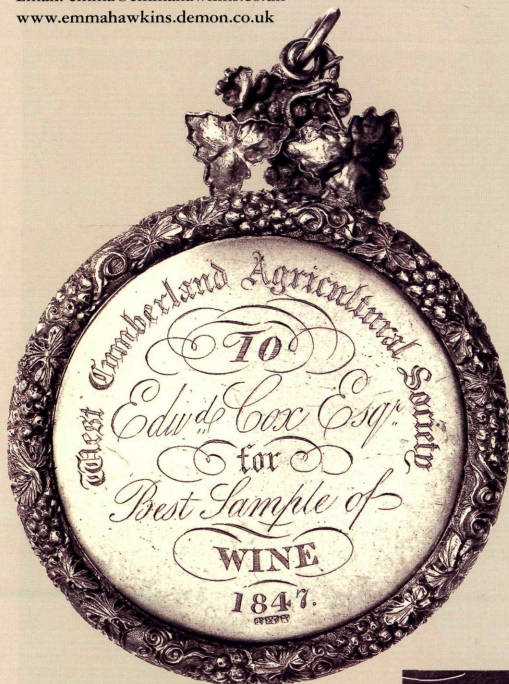 www.emmahawkins.demon.co.uk
West Cumberland Agricultural Society
TO
Edwd. Cox Esqr.
for
Best Sample of
WINE
1847.